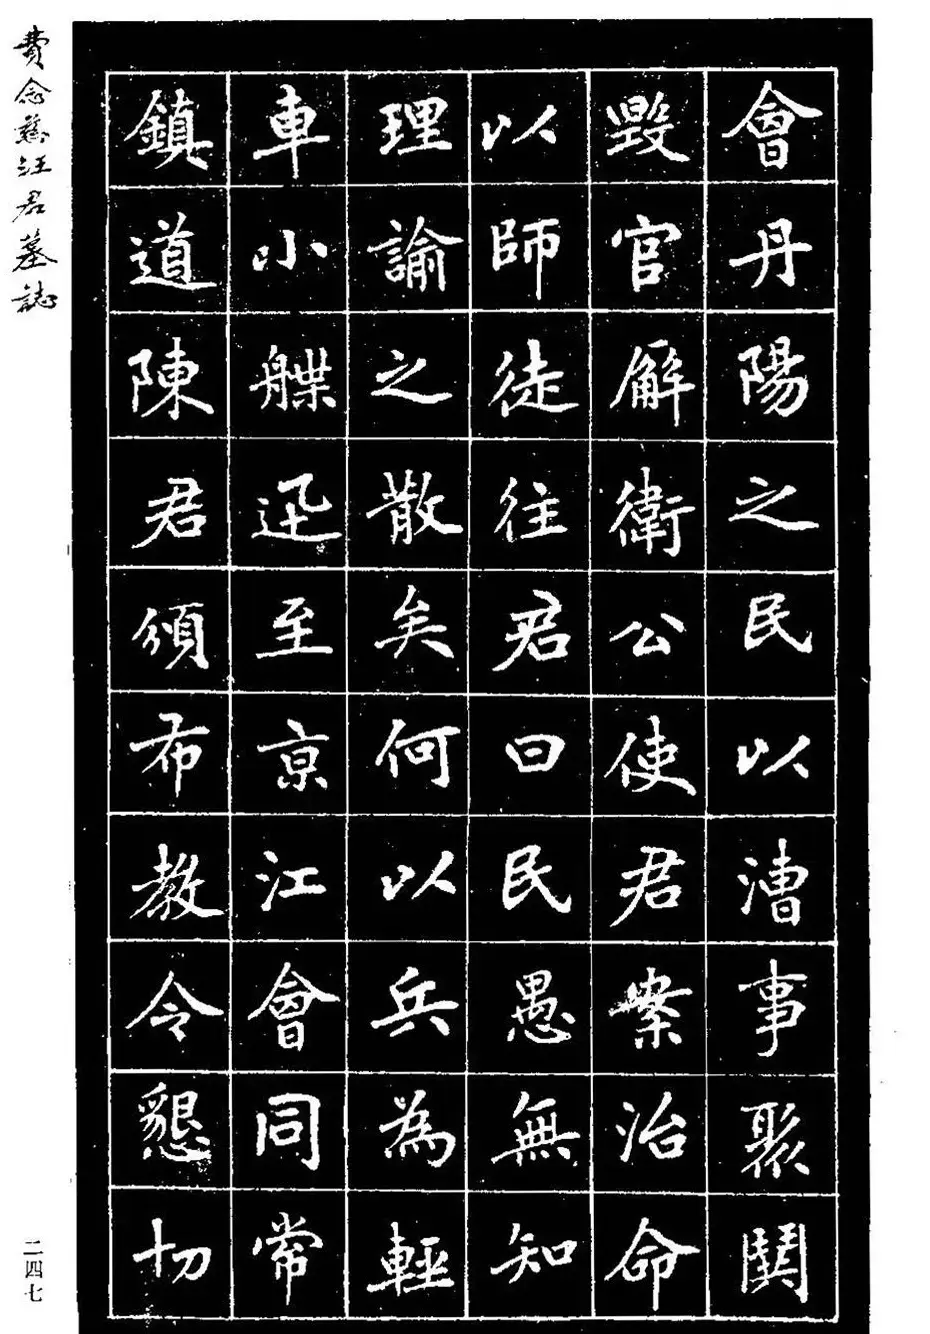 會丹陽之民以漕事聚鬪
毀官廨衛公使君案治命
以師徒往君曰民愚無知
理諭之散矣何以兵為輕
車小艓迅至京江會同常
鎮道陳君頒布教令懇切
費念慈汪君墓誌
二四七